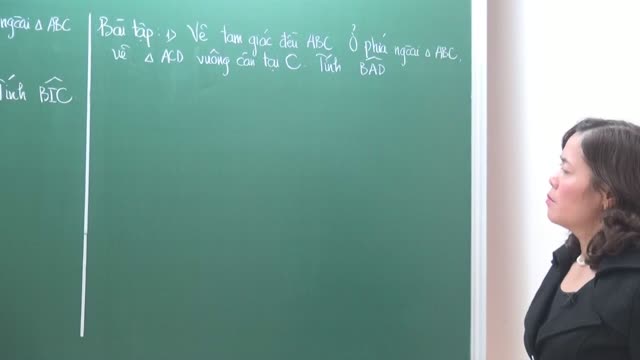 ngoài Δ ABC
Tính BIC
Bài tập: 1) Vẽ tam giác đều ABC Ở phía ngoài Δ ABC,
vẽ Δ ACD vuông cân tại C. Tính BAD